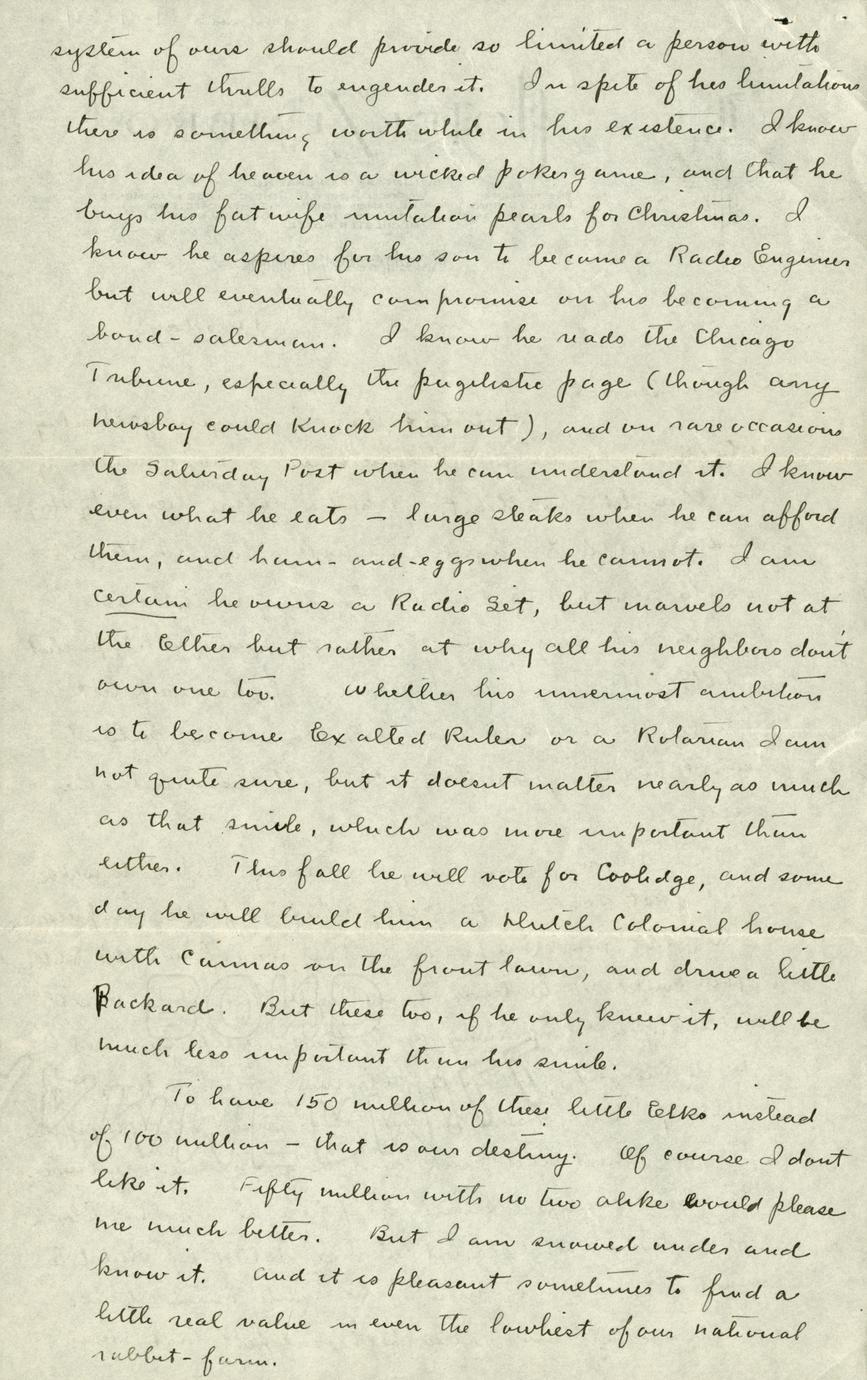 system of ours should provide so limited a person with
sufficient thrills to engender it. In spite of his limitations
there is something worth while in his existence. I know
his idea of heaven is a wicked poker game, and that he
buys his fat wife imitation pearls for Christmas. I
know he aspires for his son to become a Radio Engineer
but will eventually compromise on his becoming a
bond-salesman. I know he reads the Chicago
Tribune, especially the pugilistic page (though any
newsboy could knock him out), and on rare occasions
the Saturday Post when he can understand it. I know
even what he eats — large steaks when he can afford
them, and ham-and-eggs when he cannot. I am
certain he owns a Radio Set, but marvels not at
the Ether but rather at why all his neighbors don't
own one too. Whether his innermost ambition
is to become Exalted Ruler or a Rotarian I am
not quite sure, but it doesnt matter nearly as much
as that smile, which was more important than
either. This fall he will vote for Coolidge, and some
day he will build him a Dutch Colonial house
with Cannas on the front lawn, and drive a little
Packard. But these too, if he only knew it, will be
much less important than his smile.
To have 150 million of these little Elks instead
of 100 million — that is our destiny. Of course I dont
like it. Fifty million with no two alike would please
me much better. But I am snowed under and
know it. And it is pleasant sometimes to find a
little real value in even the lowliest of our national
rabbit-farm.